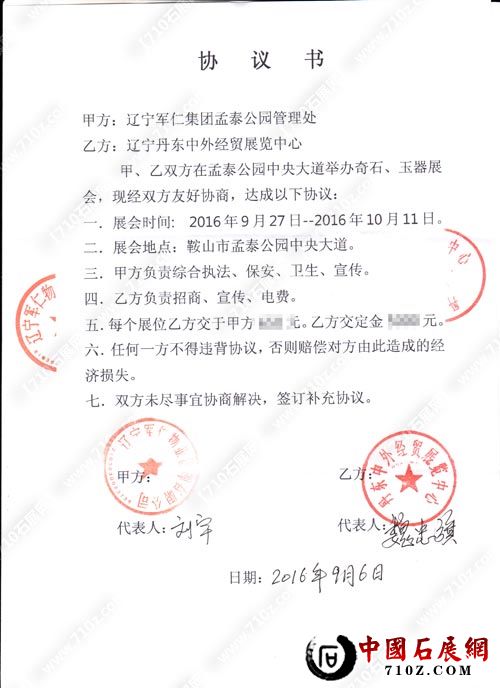 协 议 书
甲方：辽宁军仁集团孟泰公园管理处
乙方：辽宁丹东中外经贸展览中心
甲、乙双方在孟泰公园中央大道举办奇石、玉器展
会，现经双方友好协商，达成以下协议：
一．展会时间: 2016年9月27日--2016年10月11日。
二．展会地点：鞍山市孟泰公园中央大道。
三．甲方负责综合执法、保安、卫生、宣传。
四．乙方负责招商、宣传、电费。
五．每个展位乙方交于甲方 元。乙方交定金 元。
六．任何一方不得违背协议，否则赔偿对方由此造成的经
济损失。
七．双方未尽事宜协商解决，签订补充协议。
中心
辽宁军仁物
辽宁军仁物业 有限公司
丹东中外经贸展览中心
甲方： 乙方：
代表人：刘宇 代表人：
日期：2016年9月6日
中國石展網
7102.COM
www.7102.com